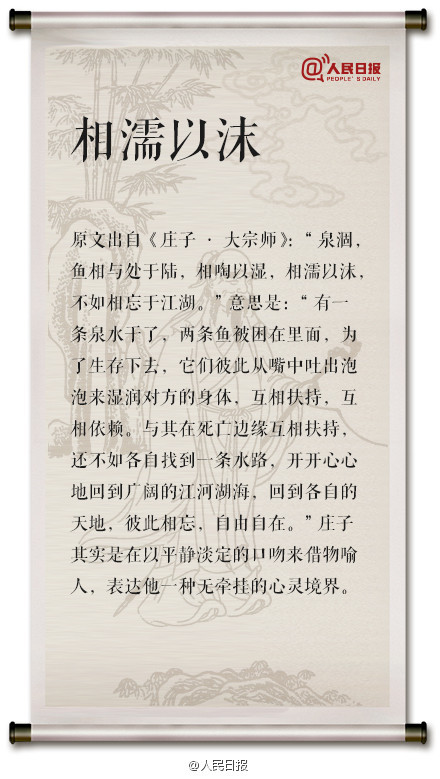 @人民日报
PEOPLE'S DAILY
相濡以沫
原文出自《庄子·大宗师》：“泉涸，
鱼相与处于陆，相呴以湿，相濡以沫，
不如相忘于江湖。”意思是：“有一
条泉水干了，两条鱼被困在里面，为
了生存下去，它们彼此从嘴中吐出泡
泡来湿润对方的身体，互相扶持，互
相依赖。与其在死亡边缘互相扶持，
还不如各自找到一条水路，开开心心
地回到广阔的江河湖海，回到各自的
天地，彼此相忘，自由自在。”庄子
其实是在以平静淡定的口吻来借物喻
人，表达他一种无牵挂的心灵境界。
@人民日报